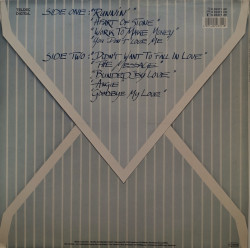 SIDE ONE: "RUNNIN'"
"HEART OF STONE"
"WORK TO MAKE MONEY"
"YOU DON'T LOVE ME"
SIDE TWO: "DIDN'T WANT TO FALL IN LOVE"
"THE MESSAGE"
"BLINDED BY LOVE"
"ANGIE"
"GOODBYE MY LOVE"